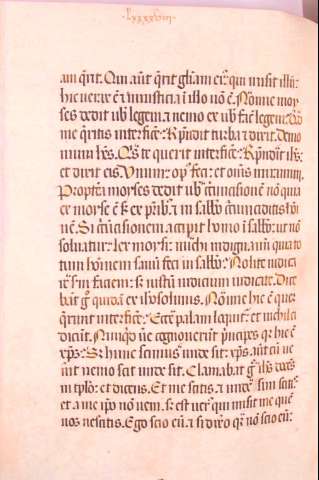 ·lxxxxviii·
am q̄rit. Qui aut̄ q̄rit gl̄iam eiꝰ qui misit illū:
hic verax ē ⁊ iniusticia ī illo nō ē. Nōnne moy
ses dedit uob̄ legem. ⁊ nemo ex uob̄ facit legem. Qd̄
me q̄ritis interfic̄e: Rn̄dit turba ⁊ dixit. Demo
nium hēs. Q̄s te querit interfic̄e: Rn̄dit ih̄s:
et dixit eis. Vnum opꝰ feci: et om̄s miramini.
Propterea moyses dedit uob̄ circūcisionē nō quia
ex moyse ē s̄ ex pr̄ib: ⁊ in sabb̄o circūciditis hōi
nē. Si circūcisionem accipit homo ī sabb̄o: ut nō
soluatur lex moysi: michi indignamī quia to
tum hoīnem sanū feci in sabb̄o: Nolite iudica
re s̄m faciem: s̄ iustū iudicium iudicate. Dice
bāt gͦ quidā ex ih̄osolimis. Nōnne hic ē quē
q̄runt interfic̄e: Ecce palam loquit᷑: et nichil ei
dicūt. Nunq̄d ūe cognouerūt p̄ncipes qꝛ hic ē
xp̄s: S̄ hunc scimus unde sit: xp̄s aut̄ cū ue
nit nemo scit unde sit. Clamabat gͦ ih̄s docēs
in tēplo: et dicens. Et me scitis. ⁊ unde sim scitis
et a me ip̄o nō ueni. s̄ est uerꝰ qui misit me quē
uos nescitis. Ego scio eū. ⁊ si dix̄o qꝛ nō scio eū: